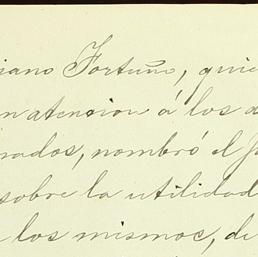 iano Fortuño, quie
n atencion á los a
rados, nombró el J
sobre la utilidad
los mismos, de